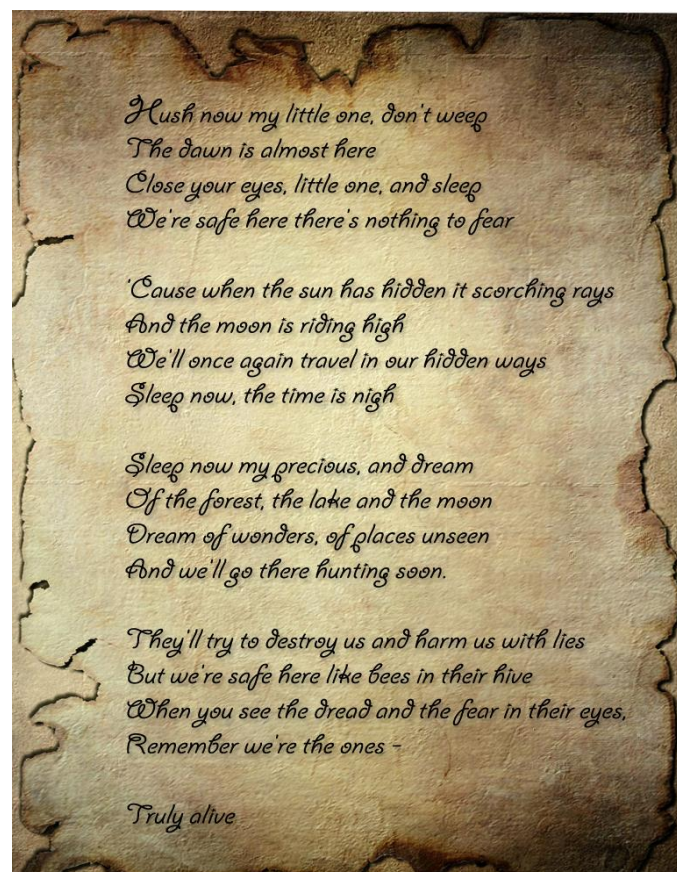 Hush now my little one, don't weep
The dawn is almost here
Close your eyes, little one, and sleep
We're safe here there's nothing to fear
'Cause when the sun has hidden it scorching rays
And the moon is riding high
We'll once again travel in our hidden ways
Sleep now, the time is nigh
Sleep now my precious, and dream
Of the forest, the lake and the moon
Dream of wonders, of places unseen
And we'll go there hunting soon.
They'll try to destroy us and harm us with lies
But we're safe here like bees in their hive
When you see the dread and the fear in their eyes,
Remember we're the ones -
Truly alive